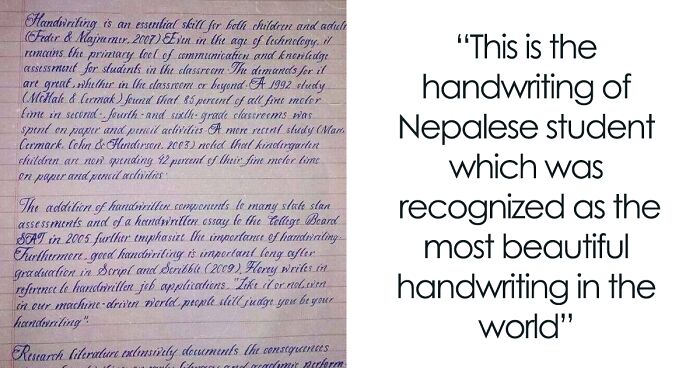 Handwriting is an essential skill for both children and adul
(Feder & Majnemer, 2007) Even in the age of technology, it
remains the primary tool of communication and knowledge
assessment for students in the classroom The demands for it
are great, whether in the classroom or beyond. A 1992 study
(McHale & Cermak) found that 85 percent of all fine motor
time in second-, fourth- and sixth-grade classrooms was
spent on paper and pencil activities A more recent study (Marr,
Cermark, Cohn & Henderson, 2003) noted that kindergarten
children are now spending 42 percent of their fine motor time
on paper and pencil activities.
The addition of handwritten components to many state stan
assessments and of a handwritten essay to the College Board
SAT in 2005 further emphasize the importance of handwriting.
Furthermore, good handwriting is important long after
graduation in Script and Scribble (2009), Florey writes in
reference to handwritten job applications, "Like it or not, even
in our machine-driven world, people still judge you be your
handwriting".
Research literature extensively documents the consequences
literacy and academic perform
“This is the
handwriting of
Nepalese student
which was
recognized as the
most beautiful
handwriting in the
world”